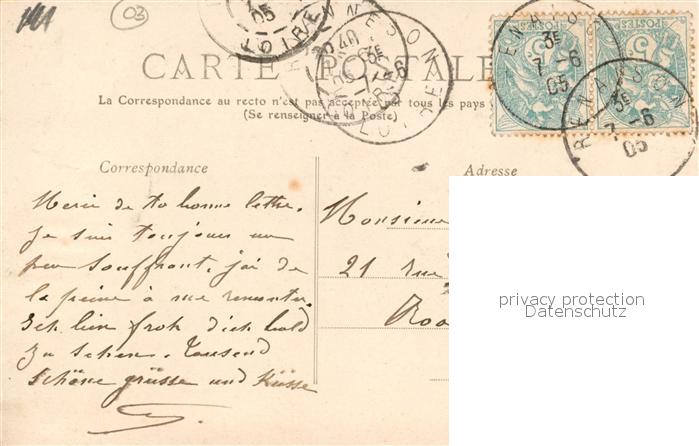 03
CARTE POSTALE
La Correspondance au recto n'est pas acceptée par tous les pays
(Se renseigner à la Poste)
RENAISON
3E
7 -6
05
RENAISON
3E
7 -6
05
RENAISON
LOIRE
POSTES
POSTES
Correspondance
Adresse
Merci de ta bonne lettre.
Je suis toujours un
peu souffrant, j'ai de
la peine à me remonter.
Ich bin froh dich bald
zu sehen. Tausend
schöne grüsse und Küsse
Monsieur
21 rue
Roa
privacy protection
Datenschutz